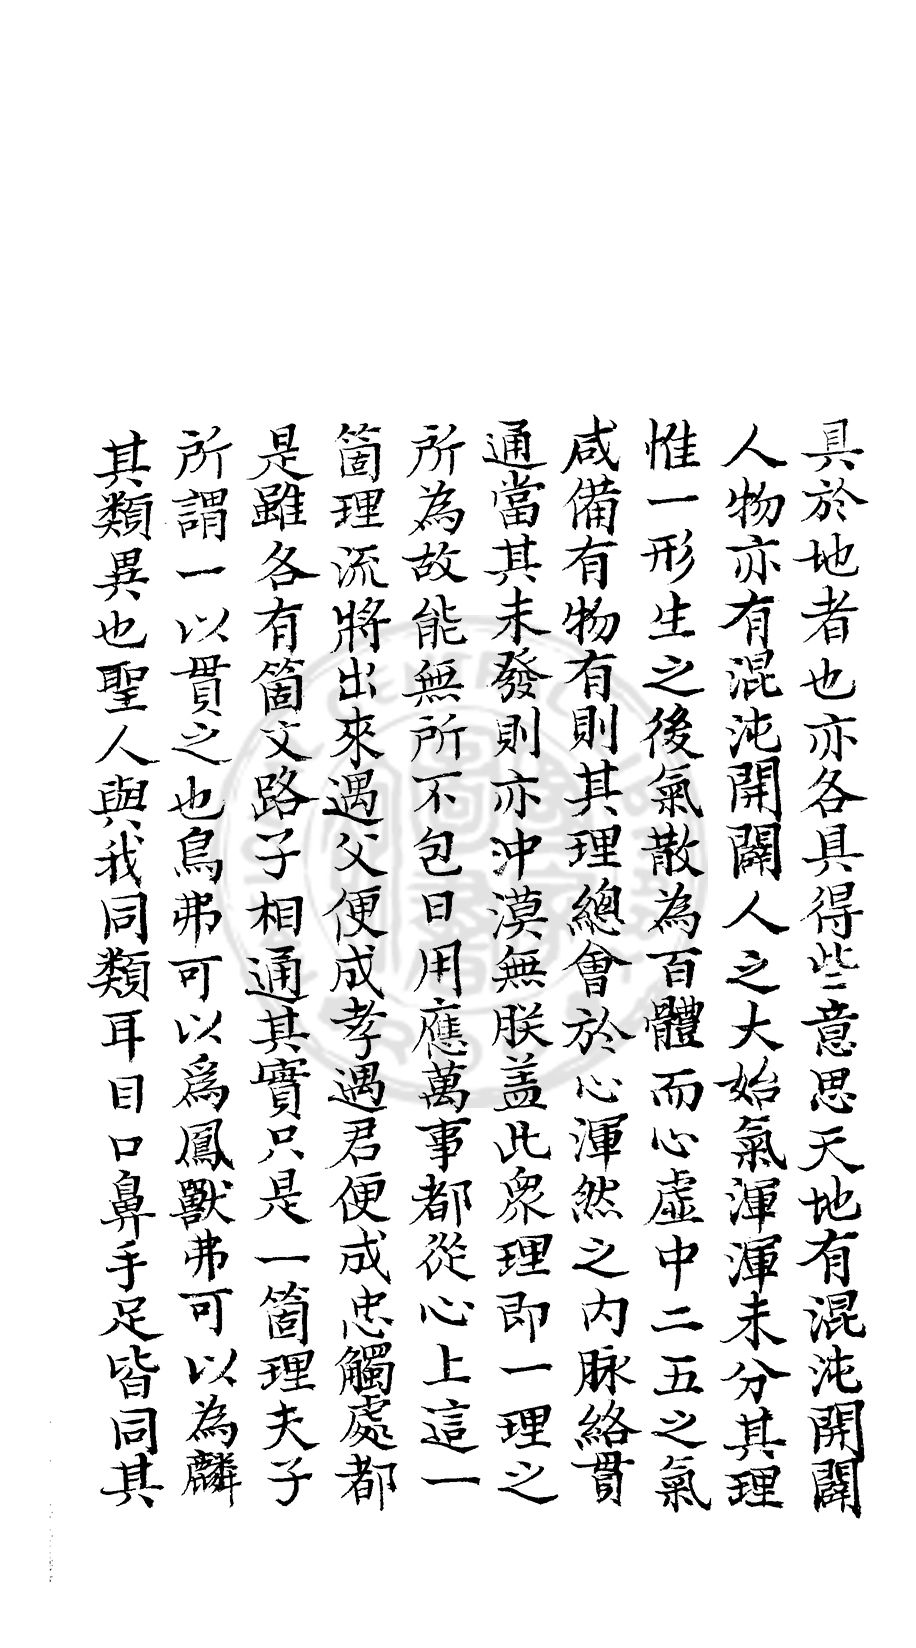 具於地者也亦各具得些意思天地有混沌開闢
人物亦有混沌開闢人之大始氣渾渾未分其理
惟一形生之後氣散為百體而心虛中二五之氣
咸備有物有則其理總會於心渾然之內脉絡貫
通當其未發則亦沖漠無朕蓋此衆理即一理之
所為故能無所不包日用應萬事都從心上這一
箇理流將出來遇父便成孝遇君便成忠觸處都
是雖各有箇文路子相通其實只是一箇理夫子
所謂一以貫之也鳥弗可以爲鳳獸弗可以為麟
其類異也聖人與我同類耳目口鼻手足皆同其